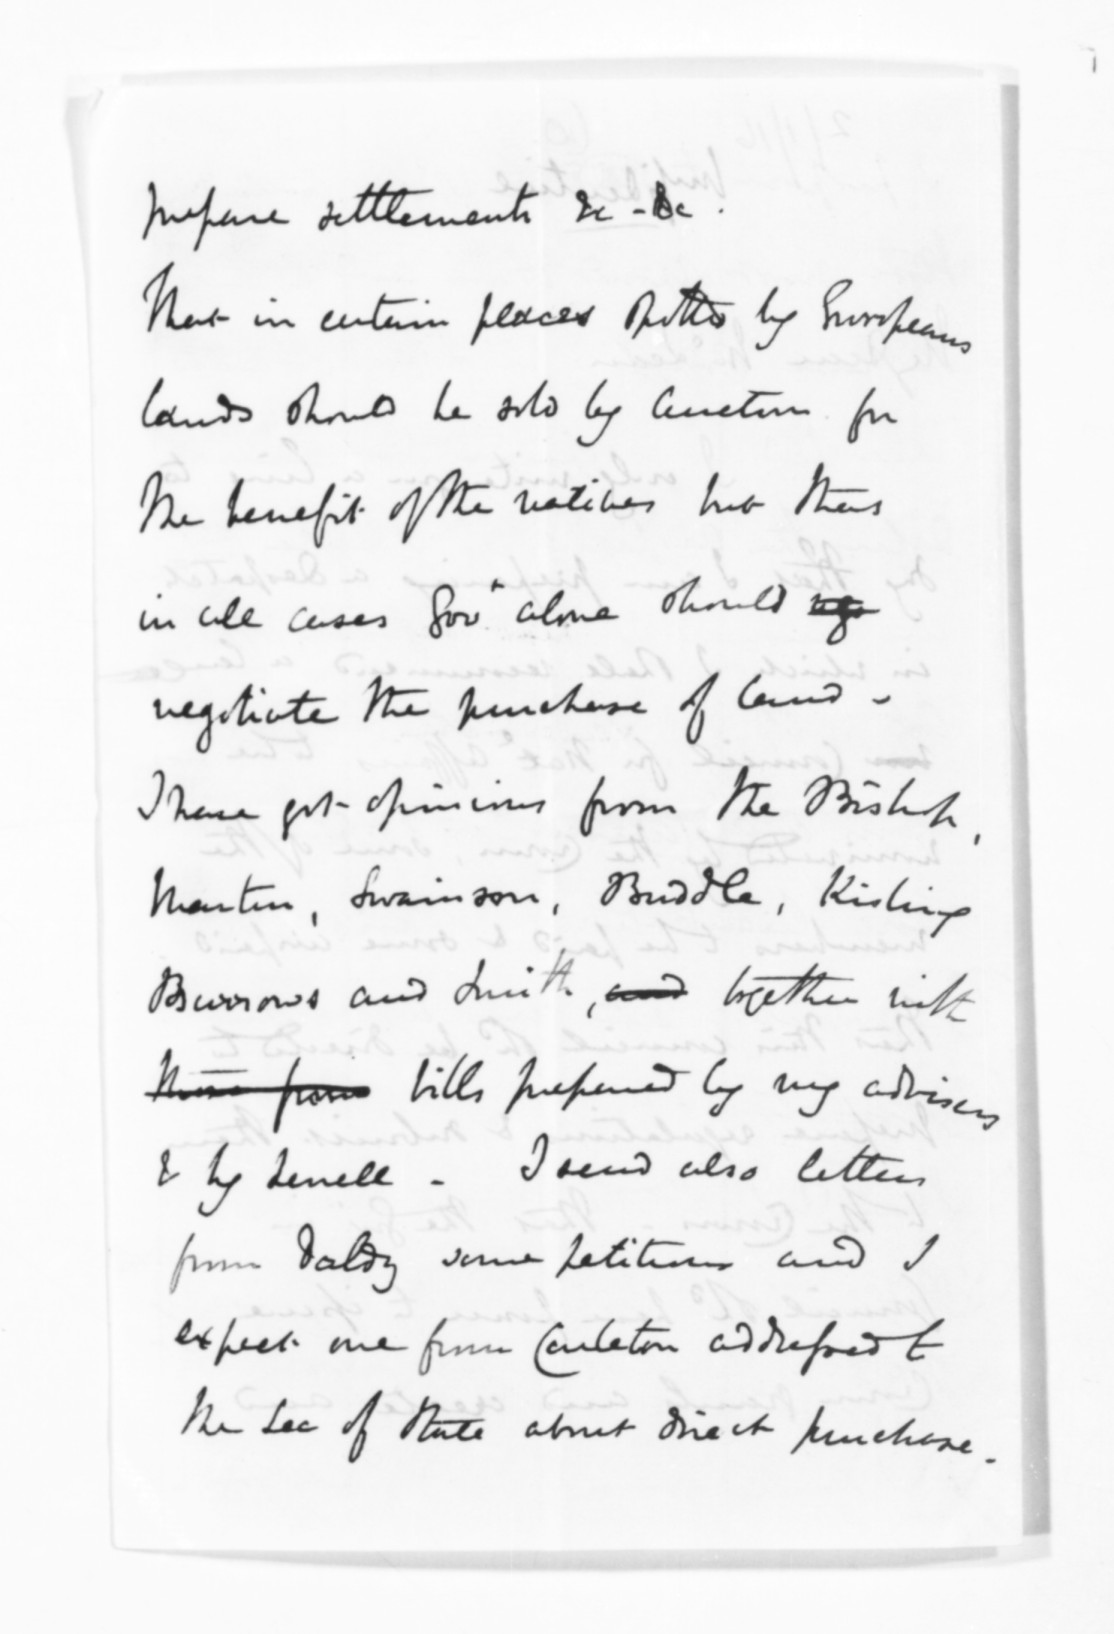 prepare settlements &c - &c.
That in certain places settled by Europeans
lands should be sold by auction for
the benefit of the natives but that
in all cases Govt alone should nego
negotiate the purchase of land -
I have got opinions from the Bishop,
Martin, Swainson, Buddle, Kisling
Burrows and Smith, and together with
those from bills prepared by my advisers
& by Sewell - I send also letters
from Daldy some petitions and I
expect one from Carleton addressed to
the Sec of State about direct purchase.